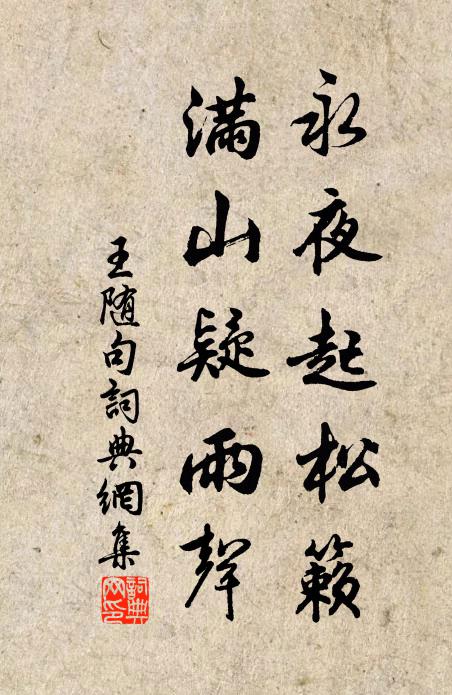 永夜起松籟
滿山疑雨聲
王随句詞典網集
詞典網印